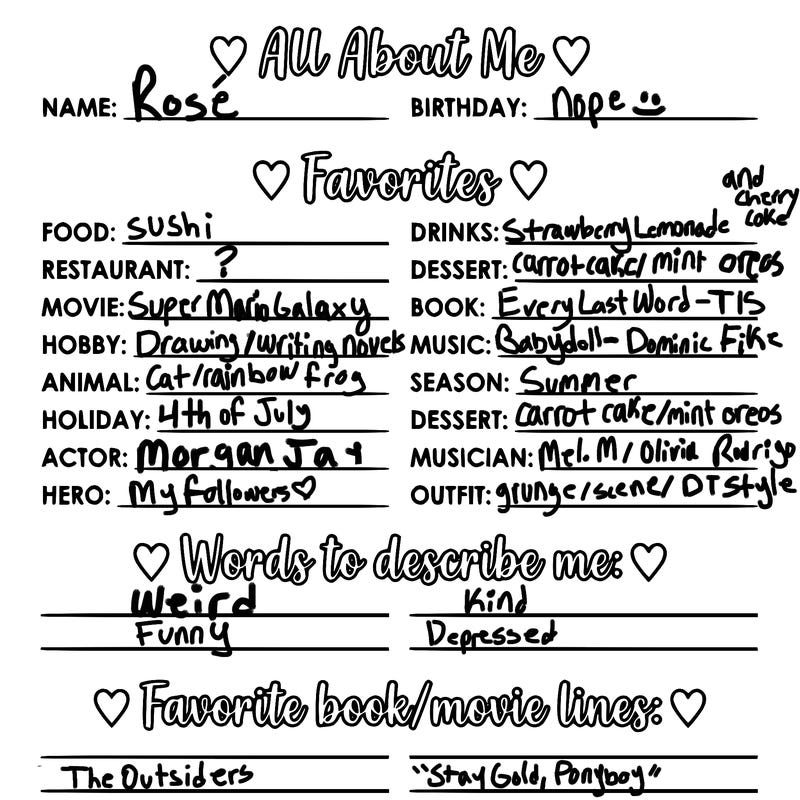 All About Me
NAME: Rosé
BIRTHDAY: nope
Favorites
and
cherry
coke
FOOD: sushi
DRINKS: Strawberry Lemonade
RESTAURANT: ?
DESSERT: carrot cake/mint oreos
MOVIE: Super Mario Galaxy
BOOK: Every Last Word - TIS
HOBBY: Drawing/writing novels
MUSIC: Babydoll - Dominic Fike
ANIMAL: Cat/rainbow frog
SEASON: Summer
HOLIDAY: 4th of July
DESSERT: carrot cake/mint oreos
ACTOR: Morgan Jay
MUSICIAN: Mel. M/Olivia Rodrigo
HERO: My followers
OUTFIT: grunge/scene/DT Style
Words to describe me:
Weird
Kind
Funny
Depressed
Favorite book/movie lines:
The Outsiders
"Stay Gold, Ponyboy"